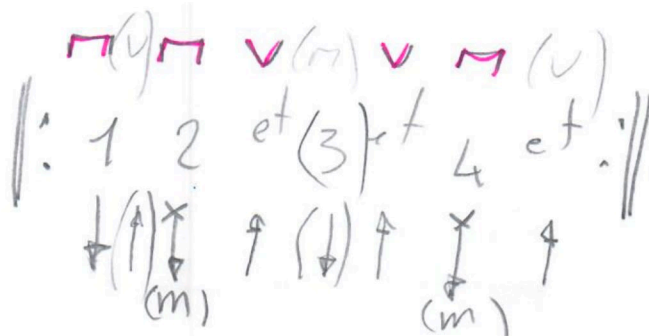 ⊓ (v) ⊓ v (m) v ⊓ (v)
𝄆 1 2 et (3) et 4 et 𝄇
↓ (↑) ↓ ↑ (↓) ↑ ↓ ↑
(m) (m)